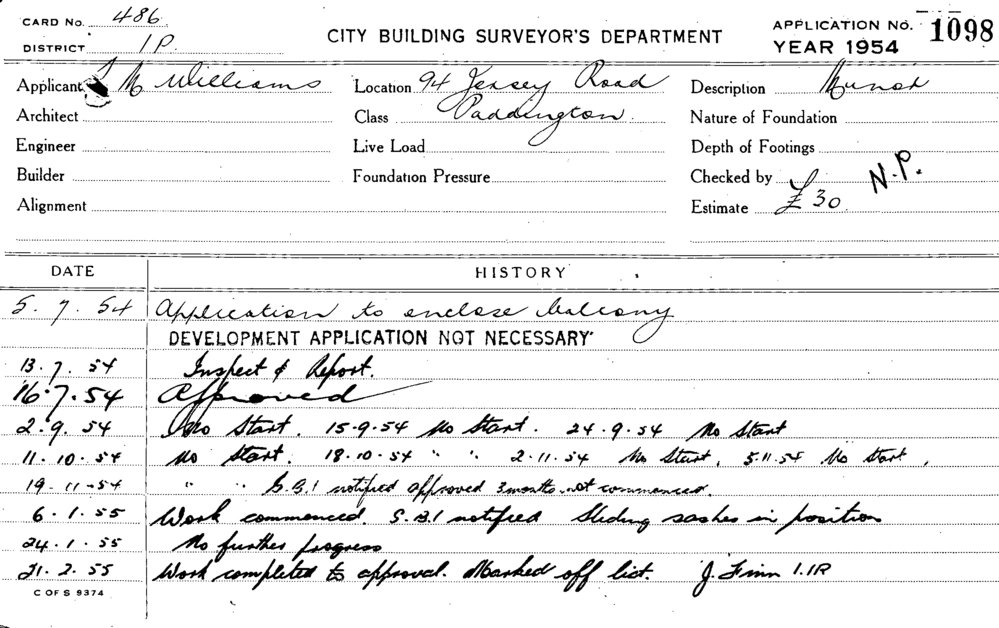 CARD No. 486.
DISTRICT 1P.
CITY BUILDING SURVEYOR'S DEPARTMENT
APPLICATION No. 1098
YEAR 1954
Applicant M Williams Location 94 Jersey Road Description
Architect Class Paddington. Nature of Foundation
Engineer Live Load Depth of Footings
Builder Foundation Pressure Checked by N.P.
Alignment Estimate £30.
DATE HISTORY
5. 7. 54 Application to enclose balcony
DEVELOPMENT APPLICATION NOT NECESSARY
13. 7. 54 Inspect & Report.
16.7.54 Approved
2.9.54 No Start. 15-9-54 No Start. 24.9.54 No Start
11.10.54 No Start. 18.10.54 " " 2.11.54 No Start, 5.11.54 No Start,
19.11-54 " " S.B.I notified approved 3 months. not commenced.
6.1.55 Work commenced. S.B.I notified Sliding sashes in position
24.1.55 No further progress
21.2.55 Work completed to approval. Marked off list. J. Finn 1.1R
C OF S 9374